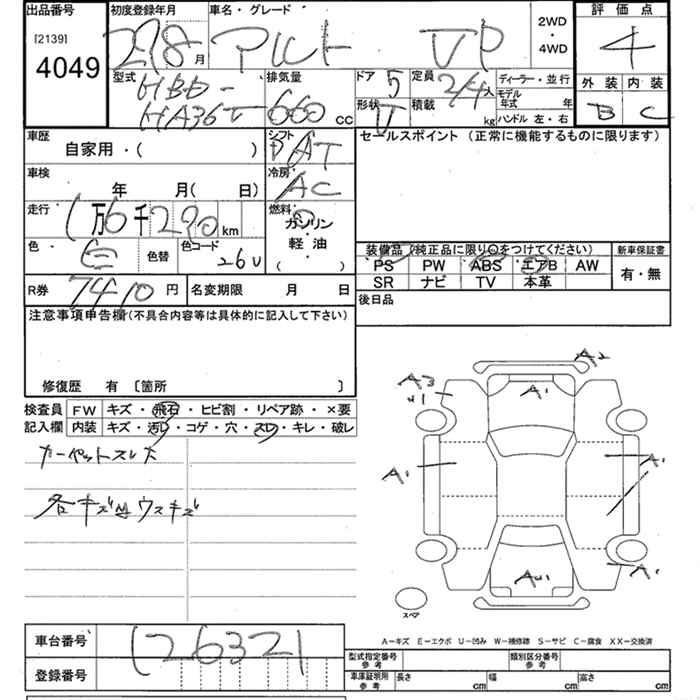 出品番号 初度登録年月 車名・グレード 2WD・4WD 評価点
[2139] 4049
28 月 アルト VP 4
型式 HBD-HA36V 排気量 660 cc ドア 5 定員 2/4 人 ディーラー・並行 外装 内装
形状 V 積載 kg モデル年式 年 ハンドル 左・右 B C
車歴 自家用・( ) シフト AT セールスポイント(正常に機能するものに限ります)
車検 年 月( 日) 冷房 AC
走行 1万6千290km 燃料 ガソリン 軽・油 ( )
色 色替 色コード 26U
装備品(純正品に限り○をつけてください) 新車保証書
PS PW ABS エアB AW 有・無
SR ナビ TV 本革
R券 7410 円 名変期限 月 日 後日品
注意事項申告欄(不具合内容等は具体的に記入して下さい)
修復歴 有 〔箇所 〕
検査員 FW キズ・飛石・ヒビ割・リペア跡・×要
記入欄 内装 キズ・汚レ・コゲ・穴・スレ・キレ・破レ
カーペットスレ大
各キズ凹ウスキズ
A2
A3
A1
A1
A1
A1
スペア
A−キズ E−エクボ U−凹み W−補修跡 S−サビ C−腐食 XX−交換済
車台番号 126321
登録番号
型式指定番号 参考 類別区分番号 参考
車庫証明用 参考 長さ cm 幅 cm 高さ cm